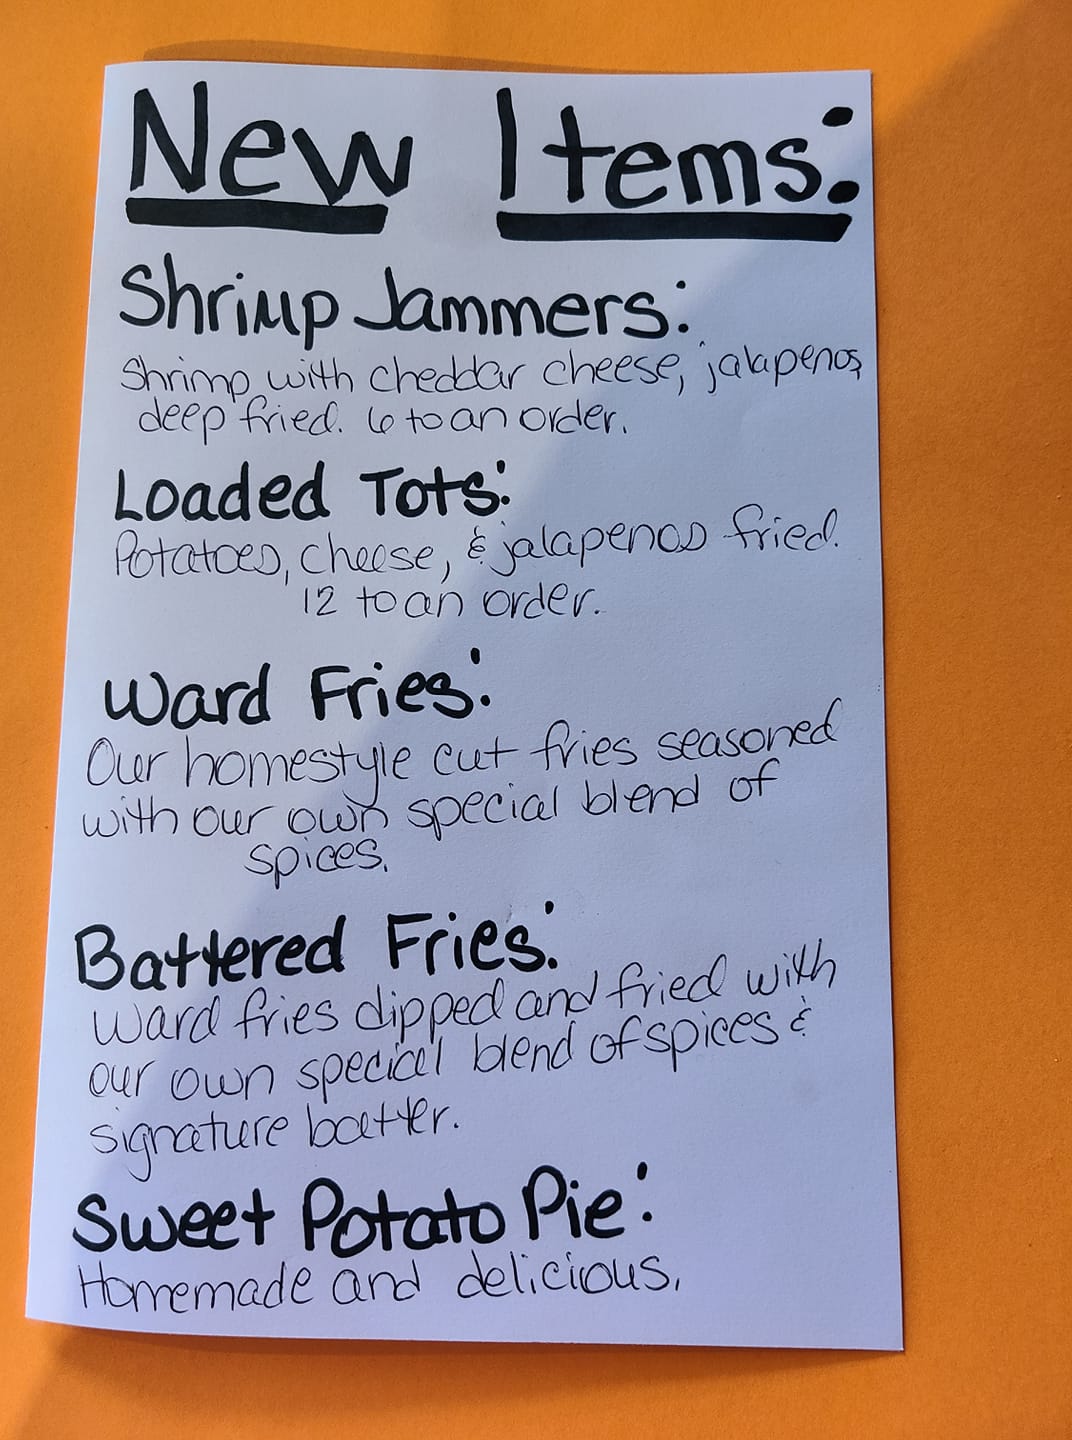 New Items:
Shrimp Jammers:
Shrimp with cheddar cheese, jalapenos,
deep fried. 6 to an order.
Loaded Tots:
Potatoes, cheese, & jalapenos fried.
12 to an order.
Ward Fries:
Our homestyle cut fries seasoned
with our own special blend of
spices.
Battered Fries:
Ward fries dipped and fried with
our own special blend of spices &
signature batter.
Sweet Potato Pie:
Homemade and delicious.